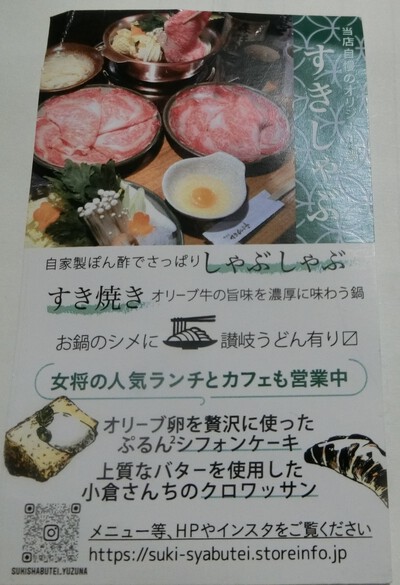 当店自慢のオリジ
すきしゃぶ
自家製ぽん酢でさっぱりしゃぶしゃぶ
すき焼き オリーブ牛の旨味を濃厚に味わう鍋
お鍋のシメに 讃岐うどん有り〼
女将の人気ランチとカフェも営業中
オリーブ卵を贅沢に使った
ぷるん²シフォンケーキ
上質なバターを使用した
小倉さんちのクロワッサン
メニュー等、HPやインスタをご覧ください
https://suki-syabutei.storeinfo.jp
SUKISHABUTEI_YUZUNA